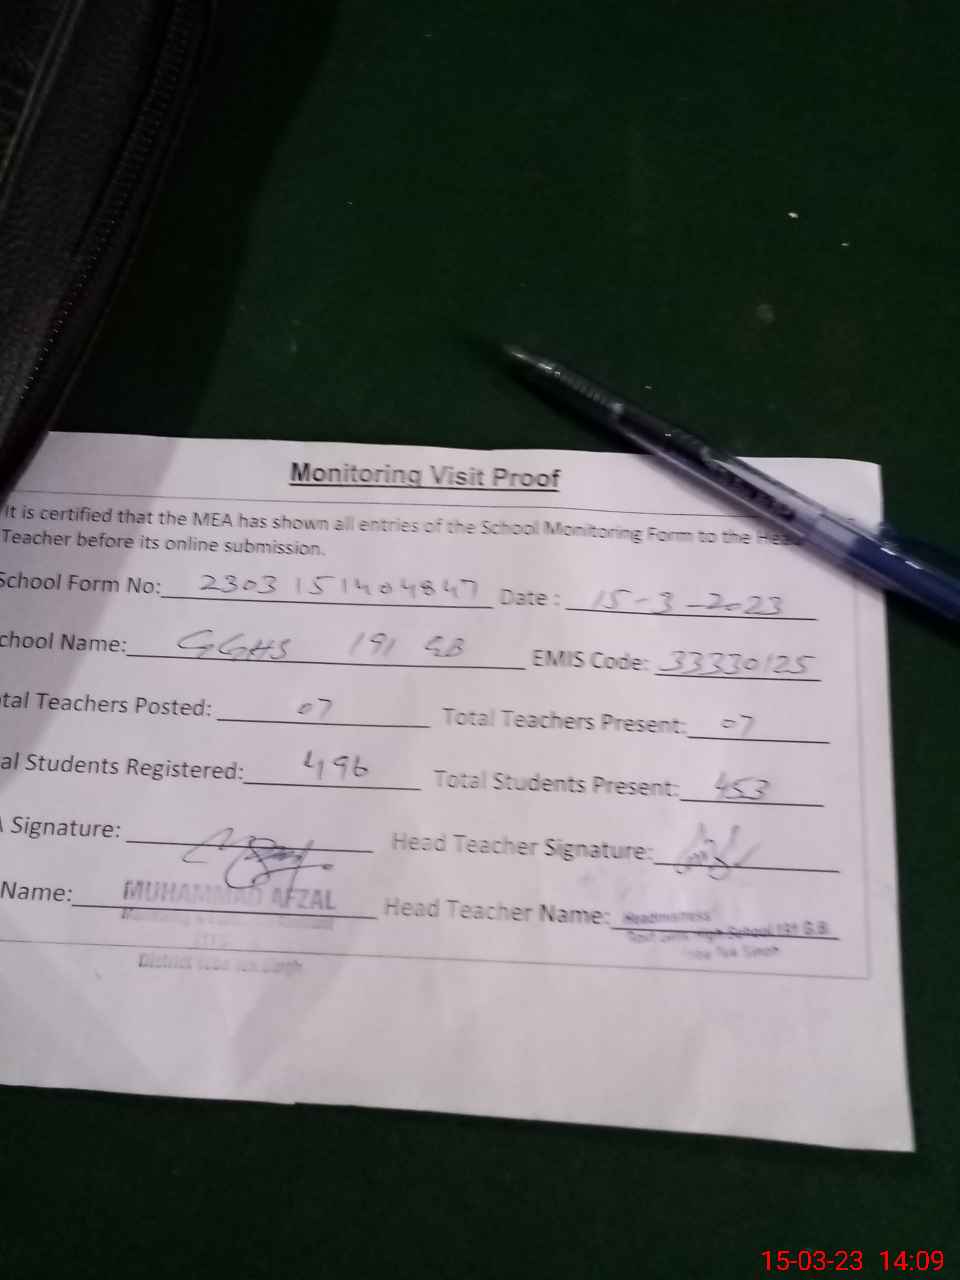 Monitoring Visit Proof
It is certified that the MEA has shown all entries of the School Monitoring Form to the Head
Teacher before its online submission.
School Form No: 2303151404847 Date : 15-3-2023
chool Name: GGHS 191 GB EMIS Code: 33330125
tal Teachers Posted: 07 Total Teachers Present: 07
al Students Registered: 496 Total Students Present: 453
Signature: Head Teacher Signature:
Name: MUHAMMAD AFZAL Head Teacher Name: Headmistress
High School 191 G.B
District Toba Tek Singh Toba Tek Singh
15-03-23 14:09